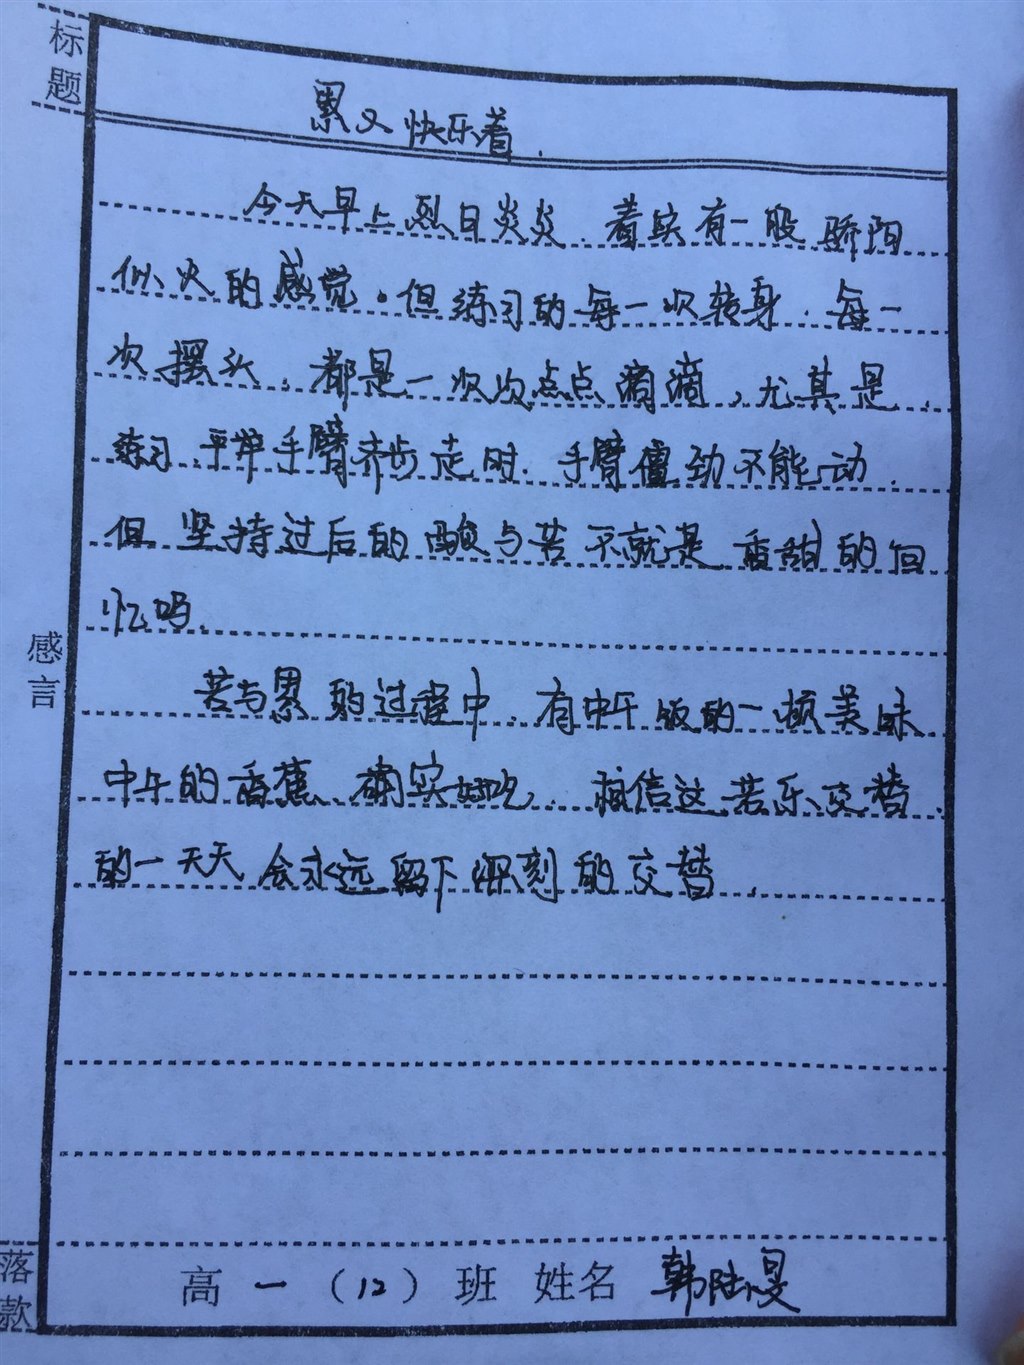 标题
累又快乐着.
今天早上烈日炎炎.着实有一股骄阳
似火的感觉.但练习的每一次转身.每一
次摆头,都是一次次点点滴滴,尤其是.
练习平举手臂齐步走时.手臂僵劲不能动.
但坚持过后的酸与苦不就是香甜的回
忆吗.
感言
苦与累的过程中.有中午饭的一顿美味
中午的香蕉.确实好吃.相信这苦乐交替.
的一天天会永远留下深刻的交替.
落款
高一(12)班 姓名 韩陆